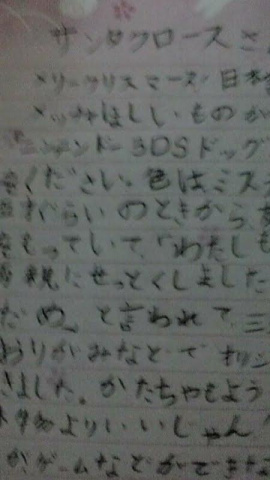 サンタクロースさ
メリークリスマース! 日本
つほしいものが
ニンテンドー3DSドッグ
ください。色はミス
のときから
をもっていて、「わたしも
親にせっとくしました
だめ」と言われて、三
おりがみなどで
きました。かたちやもよう
よりいいじゃん
ゲームなどができな